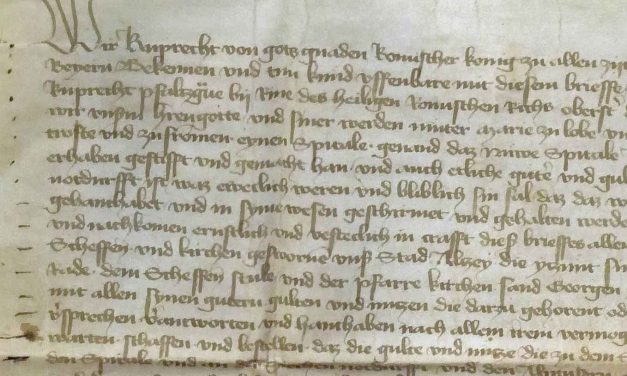 Wir Ruprecht von gots gnaden Romischer konig zu allen zijt
Beyern Bekennen und tun kund uffenbare mit diesem brieffe
Ruprecht pfaltzgrave bij Rine des heiligen Romischen Richs oberst
wir unserm hren gotte und siner werden muter Marie zu lobe
troste und zu fromen eynen Spitale genand daz Nuwe Spitale
erhaben gestifft und gemacht han und auch etliche gute und gul
notdurfft ist waz eweclich weren und bliblich sin sal daz daz
gehanthabet und in syme wesen geschirmet und gehalten werde
und nachkomen ernstlich und vesteclich in crafft dieß brieffes allen
Scheffen und kirchen gesworne unß Stad Altzey die yzunt sin
Rade dem Scheffen stule und der pfarre kirchen sand Georgen
mit allen synen gutern gulten und nutzen die darzu gehorent od
vsprechen vantworten und hanthaben nach allem irem vermog
warten schaffen und bestellen daz die gulte und nutze die zu dem
den Spitale und an der notdurfft und den